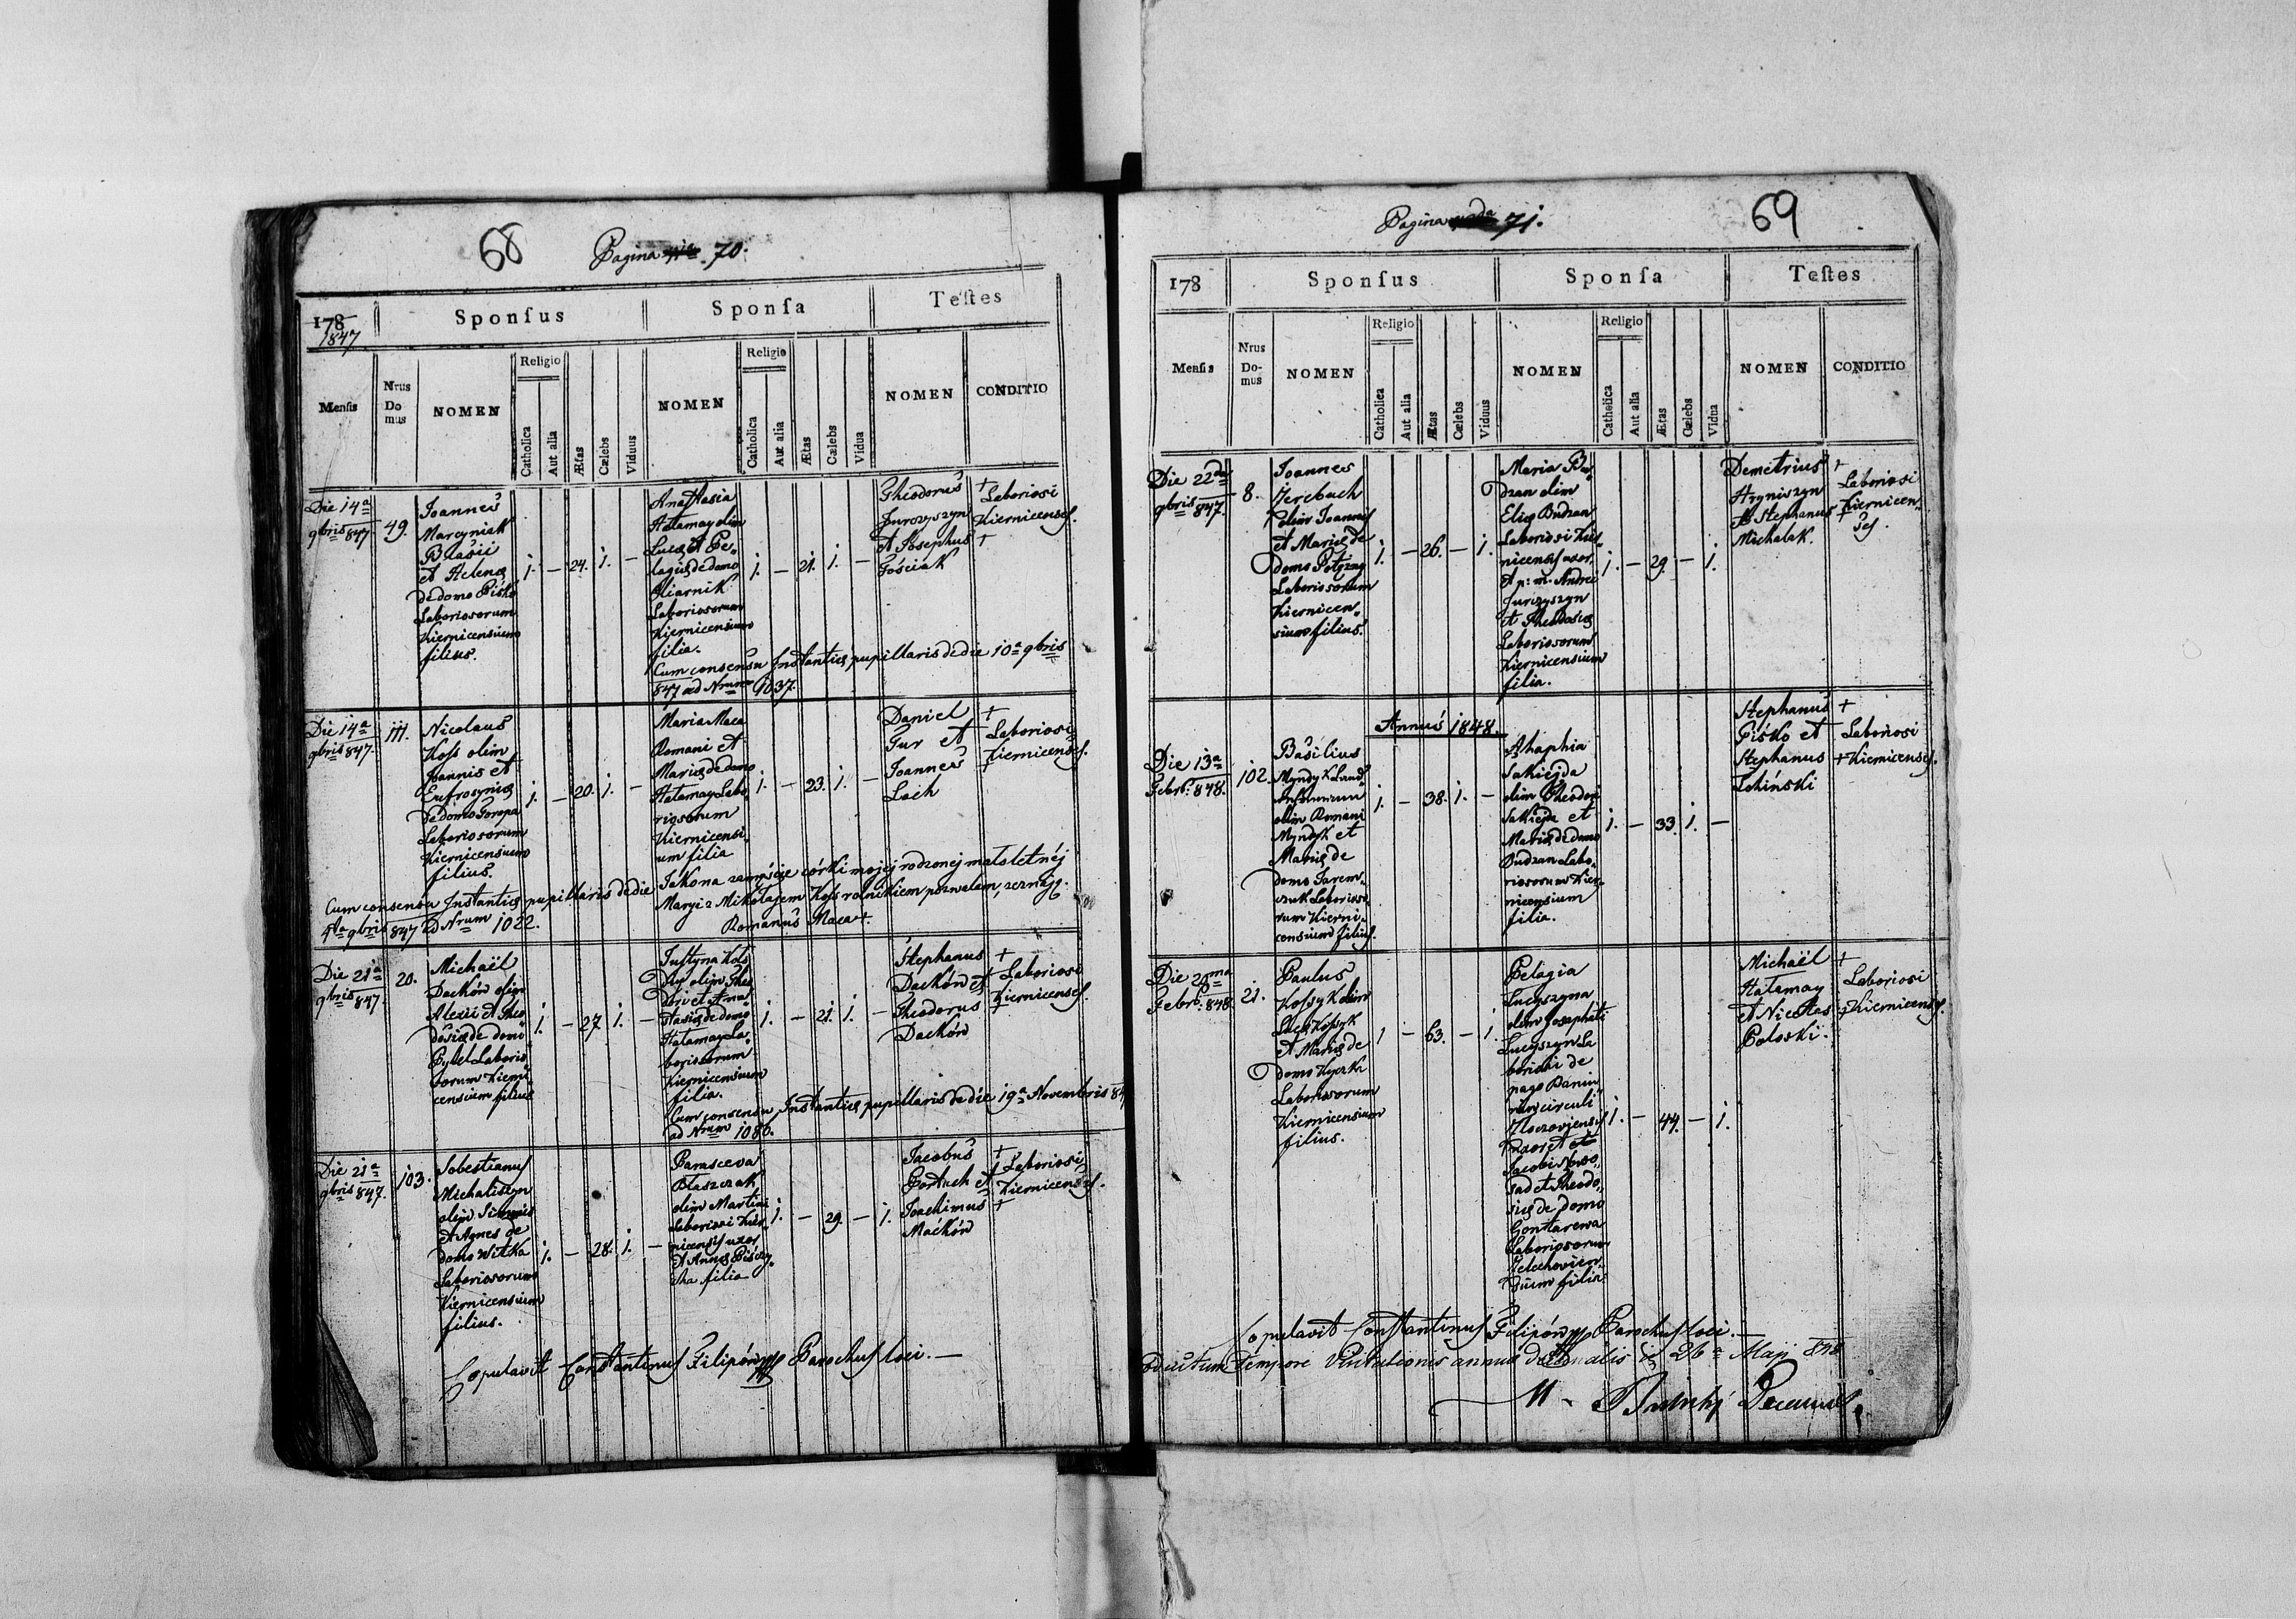 68 Pagina 70.
178 Sponsus Sponsa Testes
1847
Mensis Nrus Domus NOMEN Religio Catholica Aut alia Ætas Cælebs Viduus NOMEN Religio Catholica Aut alia Ætas Cælebs Vidua NOMEN CONDITIO
Die 14a
9bris 847
49.
Joannes
Marcyniak
Blasii
et Helenę
de domo Pisko
Laboriosorum
Kiernicensium
filius.
1. — 24. 1. —
Anastasia
Hatamay olim
Lucę et Pe-
lagię de domo
Oliarnik
Laboriosorum
Kiernicensium
filia.
1. — 21. 1. —
Theodorus
Jurczyszyn
et Josephus
Gościak
+ Laboriosi
Kiernicenses.
+
Cum consensu Instantię pupillaris de die 10a 9bris
847 ad Nrum 1037.
Die 14a
9bris 847.
111.
Nicolaus
Koss olim
Joannis et
Eufrosynię
de domo Poropa
Laboriosorum
Kiernicensium
filius.
1. — 20. 1. —
Maria Maca
Romani et
Marię de domo
Hatamay Labo-
riosorum
Kiernicensi-
um filia
1. — 23. 1. —
Daniel
Gur et
Joannes
Lach
+
Laboriosi
Kiernicenses.
+
Cum consensu Instantię pupillaris de die
4ta 9bris 847 ad Nrum 1022.
Jako na zamęście córki mojej rodzonej małoletnéj
Maryi z Mikołajem Koss rolnikiem pozwalam, zeznaję.
Romanus Maca +.
Die 21a
9bris 847
20.
Michaël
Dackón olim
Alexii et Theo-
dosię de domo
Pytel Laborio-
sorum Kierni-
censium filius
1. — 27. 1. —
Justyna Kols
Dy olim Theo
dori et Ana-
stasię de domo
Hatamay La-
boriosorum
Kiernicensium
filia.
1. — 21. 1. —
Stephanus
Dackón et
Theodorus
Dackón
+
Laboriosi
Kiernicenses.
+
Cum consensu Instantię pupillaris de die 19a Novembris 84
ad Nrum 1086.
Die 21a
9bris 847.
103.
Sobestianus
Michaliszyn
olim Simonis
et Agnes de
domo Witka
Laboriosorum
Kiernicensium
filius.
1. — 28. 1. —
Parasceva
Błaszczak
olim Martini
Laboriosi Kier-
nicensis uxor
et Annę Piśczy-
cha filia
1. — 29. — 1.
Jacobus
Bortuch et
Joachimus
Maćkón
+ Laboriosi
Kiernicenses.
+
Copulavit Constantinus Filipón Parochus loci. —
Pagina 71. 69
178 Sponsus Sponsa Testes
Mensis Nrus Domus NOMEN Religio Catholica Aut alia Ætas Cælebs Viduus NOMEN Religio Catholica Aut alia Ætas Cælebs Vidua NOMEN CONDITIO
Die 22da
9bris 847.
8.
Joannes
Jerebach
olim Joannes
et Marię de
domo
Laboriosorum
Kiernicen-
sium filius.
1. — 26. — 1.
Maria Bu-
dzan olim
Elię Budzan
Laboriosi Kier-
nicensis uxor
et p: m. Andrei
Jurczyszyn
et Theodosię
Laboriosorum
Kiernicensium
filia.
1. — 29. — 1.
Demetrius
Hryniszyn
et Stephanus
Michalak.
+
Laboriosi
Kiernicen-
ses.
+
Annus 1848.
Die 13a
Febr. 848.
102.
Basilius
Myndyk
olim Romani
Myndyk et
Marię de
domo Jarem-
czuk Laborioso-
rum Kierni-
censium filius.
1. — 38. 1. —
Ahaphia
Sakiejda
olim Theodori
Sakiejda et
Marię de domo
Budzan Labo-
riosorum Kier-
nicensium
filia.
1. — 33. 1. —
Stephanus
Pisko et
Stephanus
Lchiński
+
Laboriosi
+ Kiernicenses.
Die 26ma
Febr. 848.
21.
Paulus
Kossyk olim
Lucę Kossyk
et Marię de
domo Kyczka
Laboriosorum
Kiernicensium
filius.
1 — 63. — 1.
Pelagia
Lucyszyna
olim Josaphati
Lucyszyn La
boriosi de
pago
circuli
Złoczoviensis
uxor et
Jacobi
et Theodo-
się de domo
Gontarewa
Laboriosorum
filia.
1. — 44. — 1.
Michaël
Hatamay
et Nicolas
Poloski.
+
Laboriosi
+ Kiernicenses.
Copulavit Constantinus Filipón Parochus loci. —
tempore Visitationis annuę decanalis 26a Maji 848
Decanus